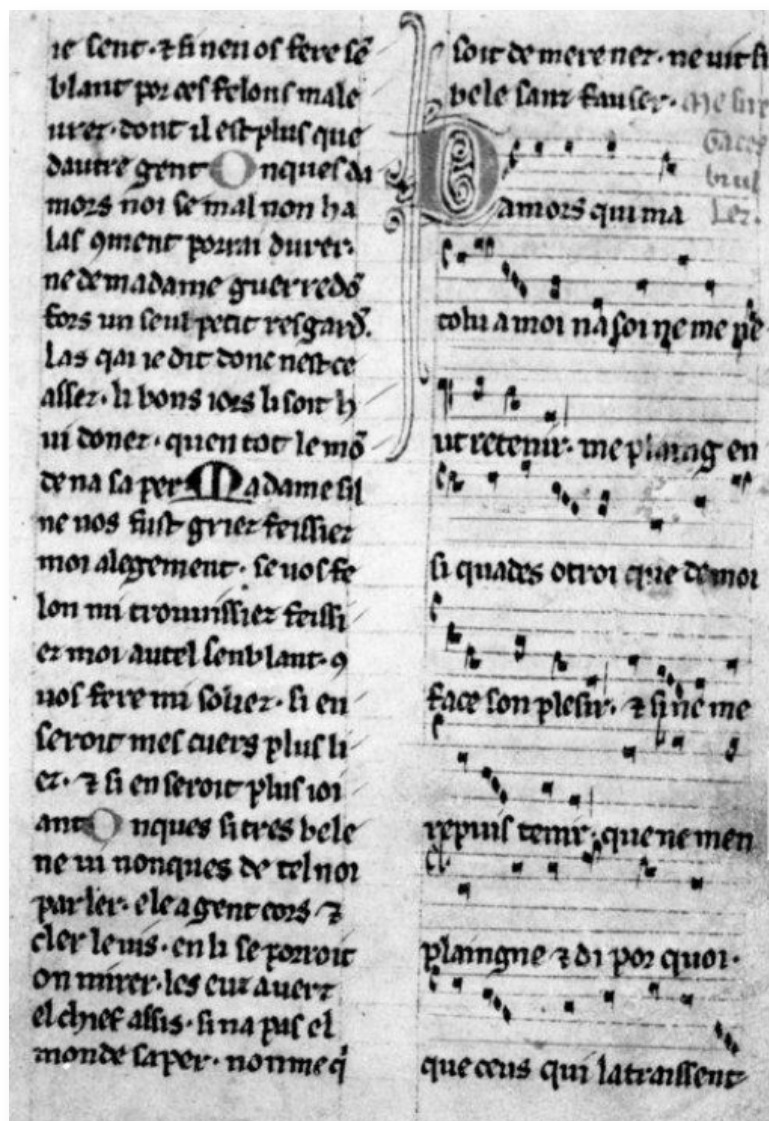 ie sent · ⁊ si nen os fere sē
blant por ces felons male
urez · dont il est plus que
dautre gent Onques da
mors noi se mal non ha
las ꝯment porrai durer ·
ne de madame guerredō
fors un seul petit resgard .
las qai ie dit donc nest ce
assez · li bons iors li soit h
ui donez · quen tot le mō
de na sa per Madame sil
ne uos fust grief feissiez
moi alegement · se uos fe
lon mi trouuissiez feissi
ez moi autel senblant · ꝯ
uos fere mi soliez · si en
seroit mes cuers plus li
ez · ⁊ si en seroit plus ioi
ant Onques si tres bele
ne ui nonques de tel noi
parler · ele a gent cors ⁊
cler le uis · en li se porroit
on mirer · les euz a uerz
el chief assis · si na pas el
monde sa per · non me q̄
soit de mere nez · ne uit si
bele sanz fauser · Me sire
Gaces
brul
lez .
Damors qui ma
tolu a moi na soi ne me pe
ut retenir · me plaing en
si quades otroi que de moi
face son plesir · ⁊ si ne me
repuis tenir · que ne men
plaingne ⁊ di por quoi ·
que ceus qui la traissent